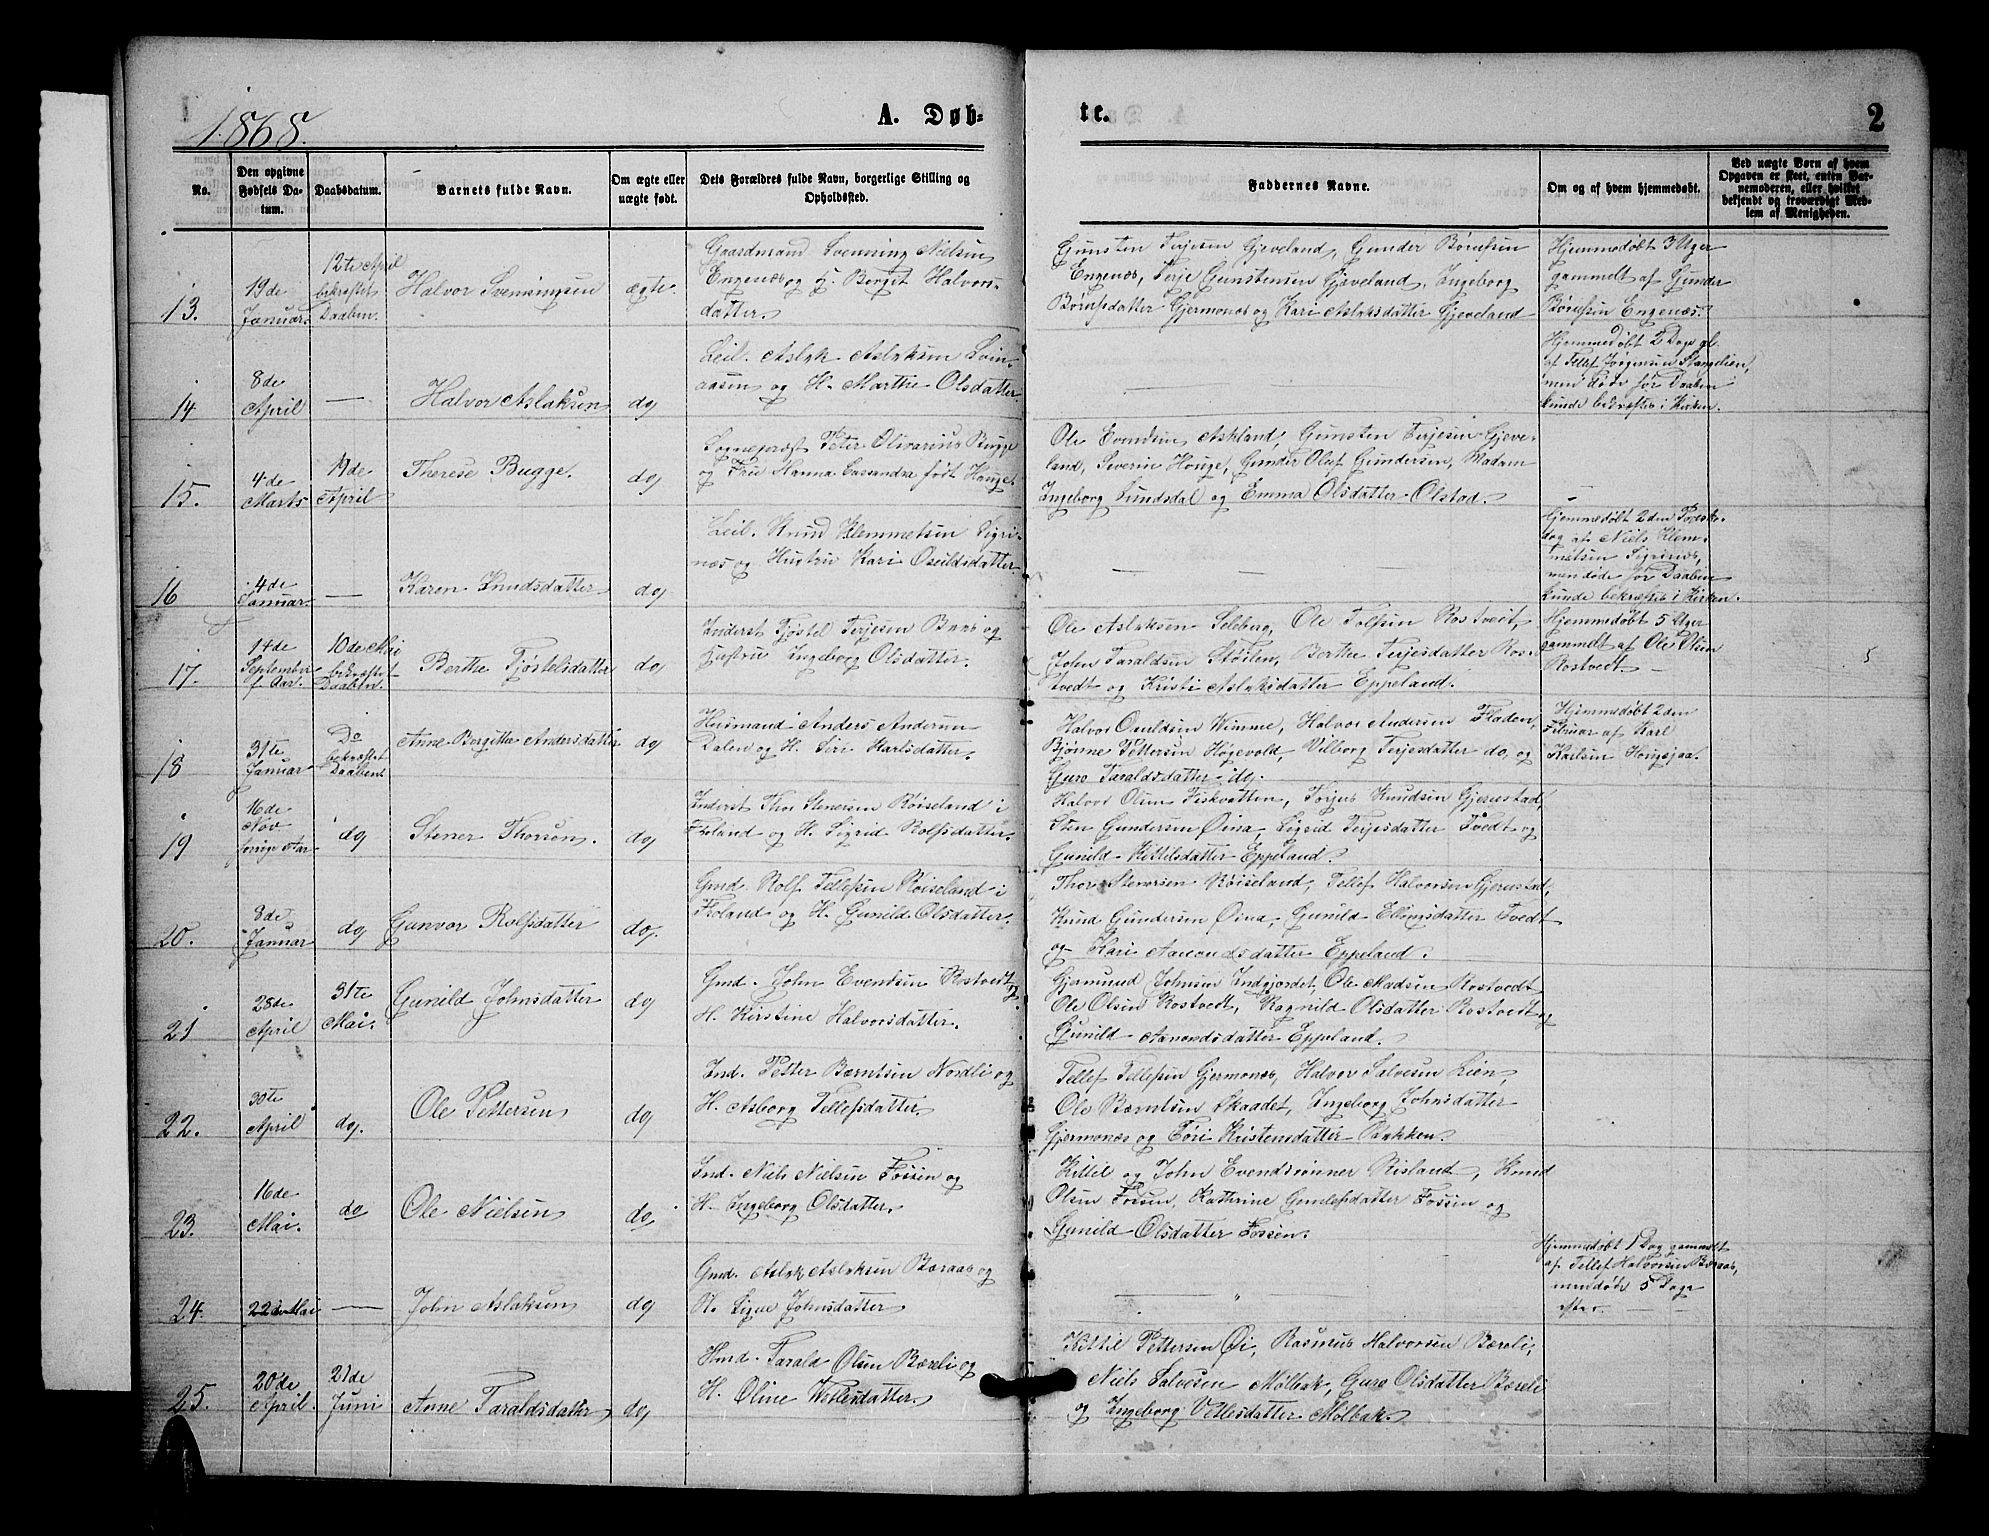 1868.
A. Døb-
te.
2
No.
Den opgivne
Fødsels Da-
tum.
Daabsdatum.
Barnets fulde Navn.
Om ægte eller
uægte født.
Dets Forældres fulde Navn, borgerlige Stilling og
Opholdssted.
Faddernes Navne.
Om og af hvem hjemmedøbt.
Ved uægte Børn af hvem
Opgaven er skeet, enten Bar-
nemoderen, eller hvilket
bekjendt og troværdigt Med-
lem af Menigheden.
13.
19de
Januar.
12te April
bekræftet
Daaben.
Halvor Svenningsen
ægte.
Gaardmand Svenning Nielsen
Engenæs og H. Berget Halvors-
datter.
Gunsten Terjesen Gjeveland, Gunder Børufsen
Engenæs, Terje Gunstensen Gjeveland, Ingeborg
Børufsdatter Gjermonæs og Kari Aslaksdatter Gjeveland
Hjemmedøbt 3 Uger
gammelt af Gunder
Børufsen Engenæs.
14
8de
April
—
Halvor Aslaksen
do
Leil. Aslak Aslaksen Lvin-
aasen og H. Marthe Olsdatter.
—
Hjemmedøbt 2 Dage gl.
af Tellef Jørgensen Stangelien,
men døde før Daaben
kunde bekræftes i Kirken.
15.
4de
Marts
19de
April
Therese Bugge.
do
Sognepræst Peter Olivarius Bugge
og Frue Hanna Cassandra født Houge.
Ole Evendsen Askland, Gunsten Terjesen Gjeve-
land, Severin Houge, Gunder Oluf Gundersen, Madam
Ingeborg Lundsdal og Emma Olsdatter Olstad.
—
16
4de
Januar.
—
Karen Knudsdatter
do
Leil. Knud Klemmetsen Sigri-
næs og Hustru Kari Osuldsdatter.
— — —
Hjemmedøbt 2den Paaske-
dag af Niels Klem-
metsen Sigrinæs,
men døde før Daaben
kunde bekræftes i Kirken.
17.
14de
September
f. Aar.
10de Mai
bekræftet
Daaben.
Berthe Tjøstelsdatter
do
Inderst Tjøstel Terjesen Baas og
Hustru Ingeborg Olsdatter.
Ole Aslaksen Seleberg, Ole Tolfsen Rostveit,
John Taraldsen Støilen, Berthe Terjesdatter Ros-
tvedt og Kristi Aslaksdatter Eppeland.
Hjemmedøbt 5 Uger
gammelt af Ole Olsen
Rostvedt. —
5
18
31te
Januar
Do
bekræftet
Daaben
Anne Borgitte Andersdatter
do
Husmand Anders Andersen
Dalen og H. Siri Karlsdatter.
Halvor Osuldsen Wimme, Halvor Andersen Fladen,
Bjønne Pettersen Høgevold, Vilborg Terjesdatter do, og
Guro Taraldsdatter do.
Hjemmedøbt 2den
Februar af Karl
Karlsen Hougsjaa.
19
16de
Nov
forrige Aar
do
Stener Thorsen.
do
Inderst Thor Stenersen Røiseland i
Froland og H. Sigrid Rolfsdatter.
Halvor Olsen Fiskvatten, Torjus Knudsen Gjerustad,
Sten Gundersen Øina, Sigrid Terjesdatter Tvedt og
Gunild Kittilsdatter Eppeland.
20.
8de
Januar
do
Gunvor Rolfsdatter
do.
Gmd. Rolf Tellefsen Røiseland i
Froland og H. Gunild Olsdatter.
Thor Stenersen Røiseland, Tellef Halvorsen Gjerustad,
Knud Gundersen Øina, Gunild Ellingsdatter Tvedt
og Kari Aanondsdatter Eppeland.
21
28de
April
31te
Mai.
Gunild Johnsdatter
do
Gmd. John Evendsen Rostvedt og
H. Kirstine Halvorsdatter.
Gjermund Johnsen Indgjordet, Ole Madsen Rostvedt
Ole Olsen Rostvedt, Ragnild Olsdatter Rostvedt og
Gunild Aanondsdatter Eppeland.
22.
30te
April
do.
Ole Pettersen
do
Ind. Petter Berntsen Nordli og
H. Asborg Tellefsdatter.
Tellef Tellefsen Gjermonæs, Halvor Salvesen Lien,
Ole Berntsen Skaadet, Ingeborg Johnsdatter
Gjermonæs og Tori Kristensdatter Bakken.
23.
16de
Mai.
do
Ole Nielsen
do
Ind. Niels Nielsen Fossen og
H. Ingeborg Olsdatter.
Kittil og John Evendsønner Risland, Knud
Olsen Fossen, Kathrine Gunlefsdatter Fossen og
Gunild Olsdatter Fossen.
24.
22de Mai
—
John Aslaksen
do
Gmd. Aslak Aslaksen Børaas og
H. Signe Johnsdatter
"
Hjemmedøbt 1 Dag gammelt
af Tellef Halvorsen Børaas,
men døde 5 Dage
efter. —
25.
20de
April.
21de
Juni
Anne Taraldsdatter
do
Hmd. Tarald Olsen Børeli og
H. Oline Vetlesdatter.
Kittil Pettersen Øi, Rasmus Halvorsen Børeli,
Niels Salvesen Mølbak, Guro Olsdatter Børeli
og Ingeborg Vetlesdatter Mølbak.